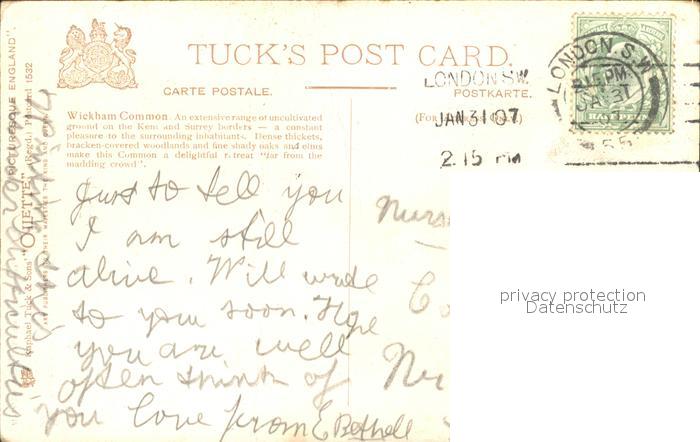 TUCK'S POST CARD.
CARTE POSTALE.
POSTKARTE.
Wickham Common. An extensive range of uncultivated
ground on the Kent and Surrey borders — a constant
pleasure to the surrounding inhabitants. Dense thickets,
bracken-covered woodlands and fine shady oaks and elms
make this Common a delightful retreat "far from the
madding crowd".
(For
LONDON S.W.
JAN 31 07
2.15 PM
LONDON S.W.
2.15 PM
JA 31
55
HALFPENNY
Just to tell you
I am still
alive. Will write
to you soon. Hope
you are well
often think of
you love from E Bethell
Nurs
Co
Raphael Tuck & Sons' "OILETTE" [Regd.] Postcard 1532
ENGLAND".
privacy protection
Datenschutz